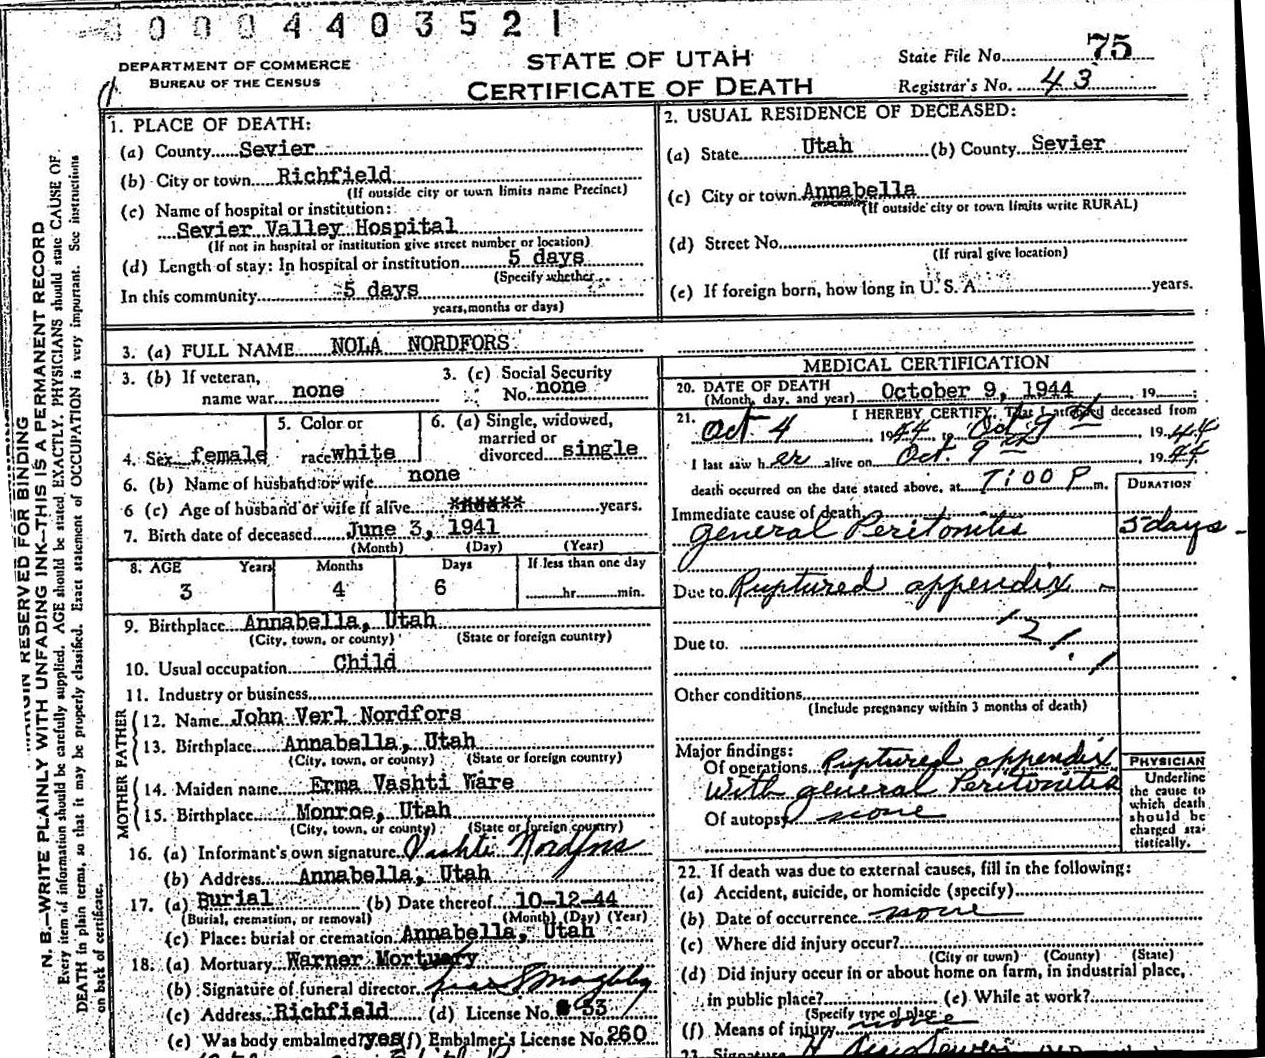 0 0 0 4 4 0 3 5 2 1
DEPARTMENT OF COMMERCE
BUREAU OF THE CENSUS
STATE OF UTAH
CERTIFICATE OF DEATH
State File No. 75
Registrar's No. 43
N. B.—WRITE PLAINLY WITH UNFADING INK—THIS IS A PERMANENT RECORD
MARGIN RESERVED FOR BINDING
Every item of information should be carefully supplied. AGE should be stated EXACTLY. PHYSICIANS should state CAUSE OF
DEATH in plain terms, so that it may be properly classified. Exact statement of OCCUPATION is very important. See instructions
on back of certificate.
1. PLACE OF DEATH:
(a) County Sevier
(b) City or town Richfield
(If outside city or town limits name Precinct)
(c) Name of hospital or institution:
Sevier Valley Hospital
(If not in hospital or institution give street number or location)
(d) Length of stay: In hospital or institution 5 days
(Specify whether
In this community 5 days
years, months or days)
2. USUAL RESIDENCE OF DECEASED:
(a) State Utah (b) County Sevier
(c) City or town Annabella
(If outside city or town limits write RURAL)
(d) Street No.
(If rural give location)
(e) If foreign born, how long in U. S. A. years.
3. (a) FULL NAME NOLA NORDFORS
3. (b) If veteran, name war none
3. (c) Social Security No. none
4. Sex female
5. Color or race white
6. (a) Single, widowed, married or divorced single
6. (b) Name of husband or wife none
6 (c) Age of husband or wife if alive xxxxxx years.
7. Birth date of deceased June 3, 1941
(Month) (Day) (Year)
8. AGE Years Months Days If less than one day
3 4 6 hr. min.
9. Birthplace Annabella, Utah
(City, town, or county) (State or foreign country)
10. Usual occupation Child
11. Industry or business
FATHER
12. Name John Verl Nordfors
13. Birthplace Annabella, Utah
(City, town, or county) (State or foreign country)
MOTHER
14. Maiden name Erma Vashti Ware
15. Birthplace Monroe, Utah
(City, town, or county) (State or foreign country)
16. (a) Informant's own signature Vashti Nordfors
(b) Address Annabella, Utah
17. (a) Burial (b) Date thereof 10-12-44
(Burial, cremation, or removal) (Month) (Day) (Year)
(c) Place: burial or cremation Annabella, Utah
18. (a) Mortuary Warner Mortuary
(b) Signature of funeral director
(c) Address Richfield (d) License No. 33
(e) Was body embalmed? yes (f) Embalmer's License No. 260
MEDICAL CERTIFICATION
20. DATE OF DEATH
(Month, day, and year) October 9, 1944 19
21. I HEREBY CERTIFY, That I attended deceased from
Oct 4 1944 to Oct 9th, 1944
I last saw her alive on Oct. 9th, 1944
death occurred on the date stated above, at 7:00 P m.
DURATION
Immediate cause of death
general Peritonitis 5 days
Due to Ruptured appendix
Due to.
Other conditions
(Include pregnancy within 3 months of death)
Major findings:
Of operations Ruptured appendix
with general Peritonitis
Of autopsy none
PHYSICIAN
Underline
the cause to
which death
should be
charged sta-
tistically.
22. If death was due to external causes, fill in the following:
(a) Accident, suicide, or homicide (specify)
(b) Date of occurrence none
(c) Where did injury occur?
(City or town) (County) (State)
(d) Did injury occur in or about home on farm, in industrial place,
in public place? (e) While at work?
(Specify type of place
(f) Means of injury none
23. Signature